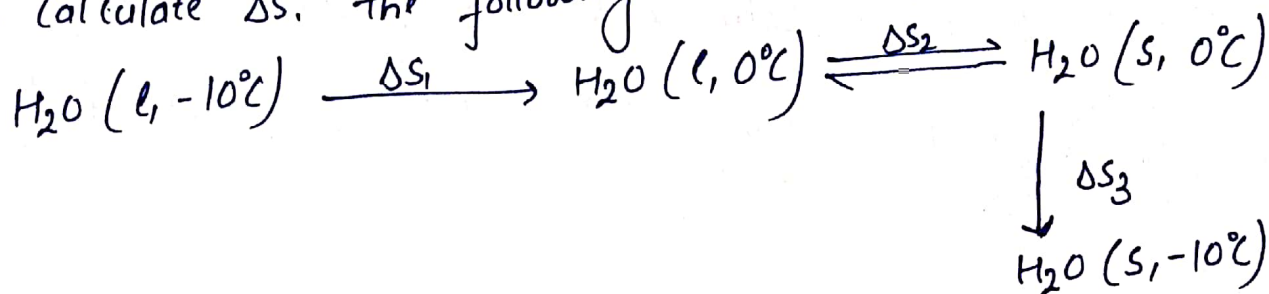 Calculate ΔS. The
H₂O (l, -10°C) ΔS₁ → H₂O (l, 0°C) ΔS₂ ⇌ H₂O (s, 0°C)
↓ ΔS₃
H₂O (s, -10°C)